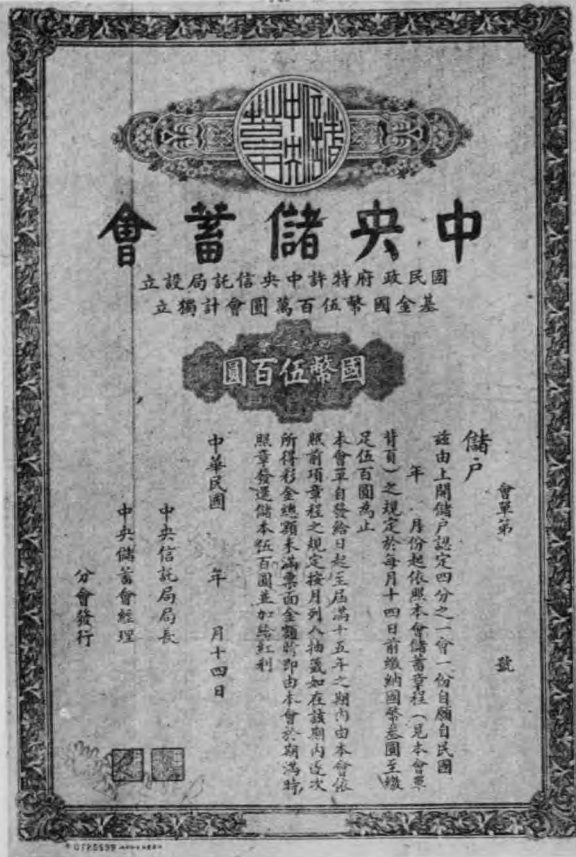 中央儲蓄會
中央儲蓄會
國民政府特許中央信託局設立
基金國幣伍百萬圓會計獨立
四分之一會
國幣伍百圓
會單第 號
儲戶
茲由上開儲戶認定四分之一會一份自願自民國
年 月份起依照本會儲蓄章程（見本會單
背頁）之規定於每月十四日前繳納國幣叁圓至繳
足伍百圓為止
本會單自發給日起至屆滿十五年之期內由本會依
照前項章程之規定按月列入抽籤如在該期內逐次
所得彩金總額未滿票面金額時即由本會於期滿時
照章發還儲本伍百圓並加給紅利
中華民國 年 月十四日
中央信託局局長
中央儲蓄會經理
分會發行